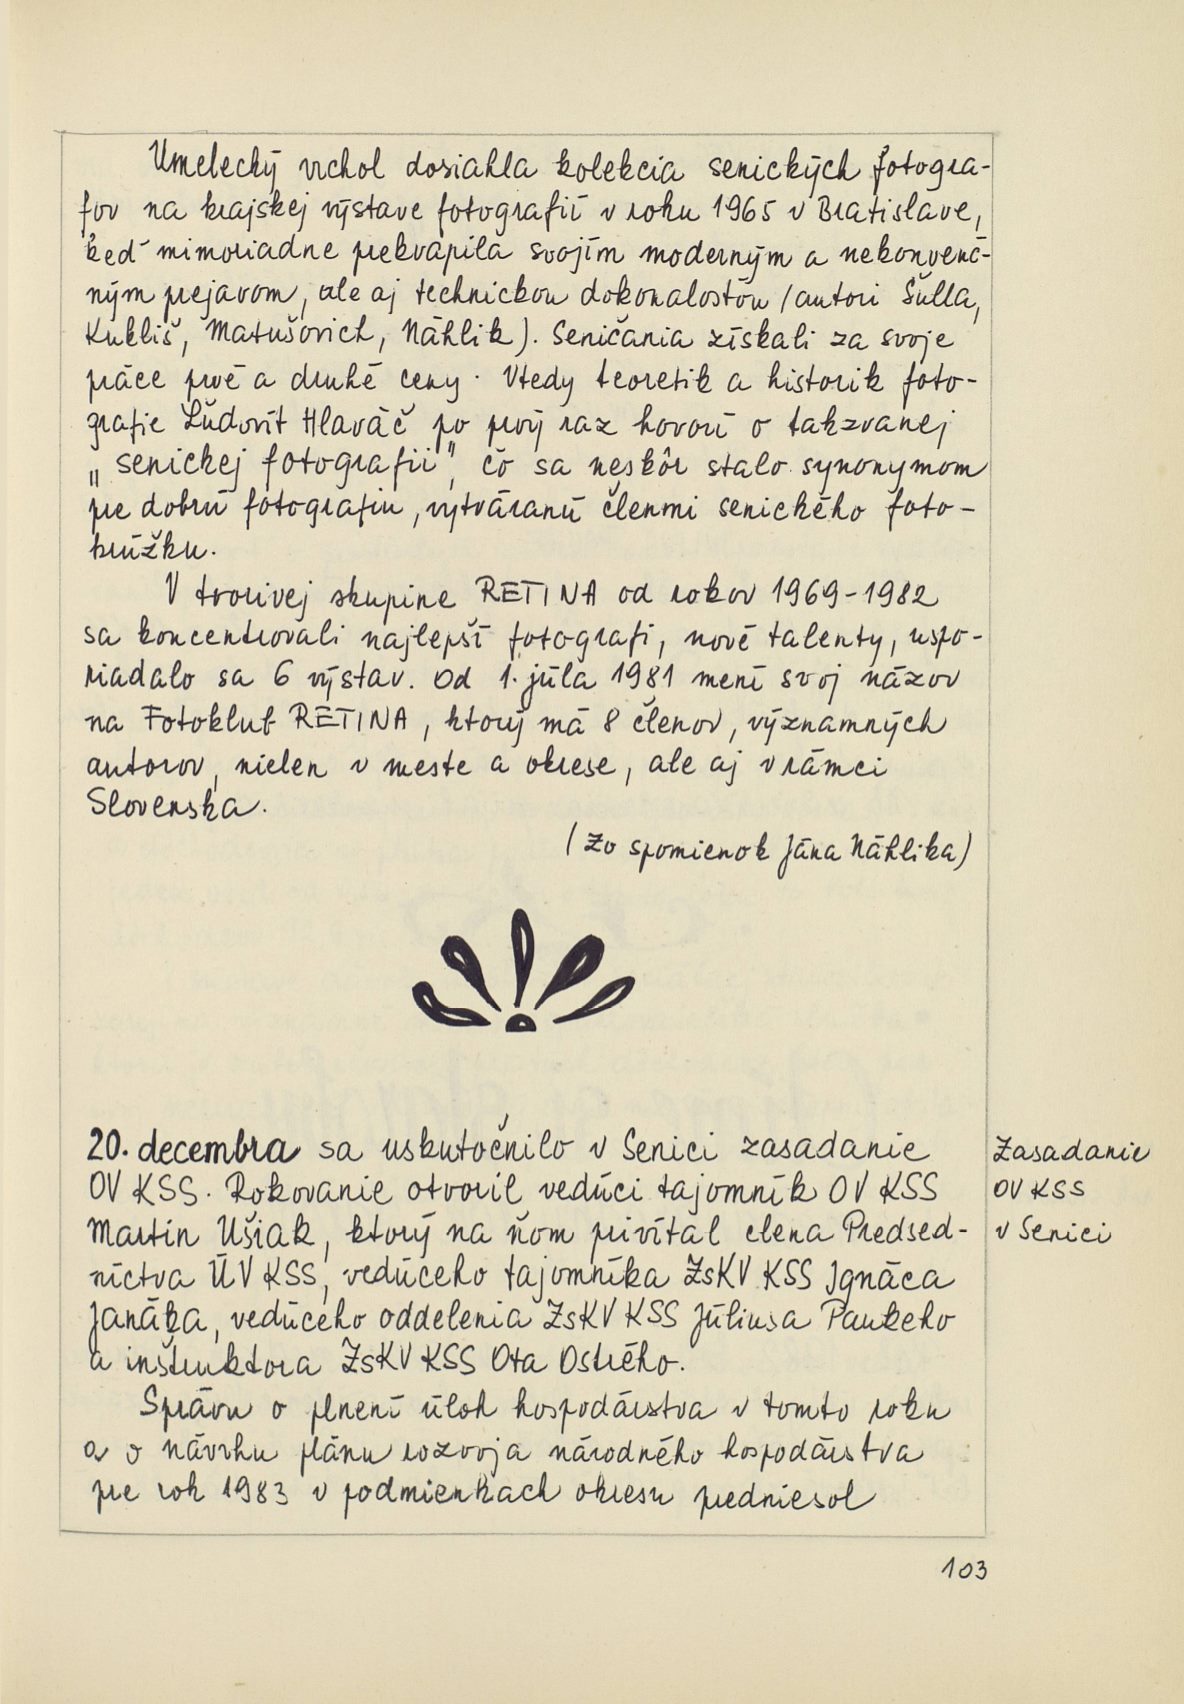 Umelecký vrchol dosiahla kolekcia senických fotogra-
fov na krajskej výstave fotografií v roku 1965 v Bratislave,
keď mimoriadne prekvapila svojím moderným a nekonvenč-
ným prejavom, ale aj technickou dokonalosťou (autori Šulla,
Kukliš, Matušovich, Náhlik). Seničania získali za svoje
práce prvé a druhé ceny. Vtedy teoretik a historik foto-
grafie Ľudovít Hlaváč po prvý raz hovorí o takzvanej
„senickej fotografii", čo sa neskôr stalo synonymom
pre dobrú fotografiu, vytváranú členmi senického foto-
krúžku.
V tvorivej skupine RETINA od rokov 1969-1982
sa koncentrovali najlepší fotografi, nové talenty, uspo-
riadalo sa 6 výstav. Od 1. júla 1981 mení svoj názov
na Fotoklub RETINA, ktorý má 8 členov, významných
autorov, nielen v meste a okrese, ale aj v rámci
Slovenska.
(Zo spomienok Jána Náhlika)
20. decembra sa uskutočnilo v Senici zasadanie
OV KSS. Rokovanie otvoril vedúci tajomník OV KSS
Martin Ušiak, ktorý na ňom privítal člena Predsed-
níctva ÚV KSS, vedúceho tajomníka ZsKV KSS Ignáca
Janáka, vedúceho oddelenia ZsKV KSS Júliusa Paukeho
a inštruktora ZsKV KSS Ota Ostrého.
Správu o plnení úloh hospodárstva v tomto roku
a o návrhu plánu rozvoja národného hospodárstva
pre rok 1983 v podmienkach okresu predniesol
Zasadanie
OV KSS
v Senici
103